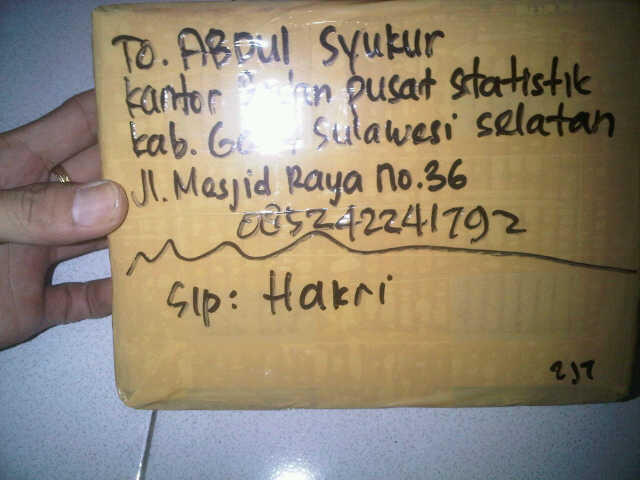 To. ABDUL Syukur
kantor Badan pusat statistik
kab. Sulawesi selatan
Jl. Masjid Raya no.36
085242241792
Slp: Hakri